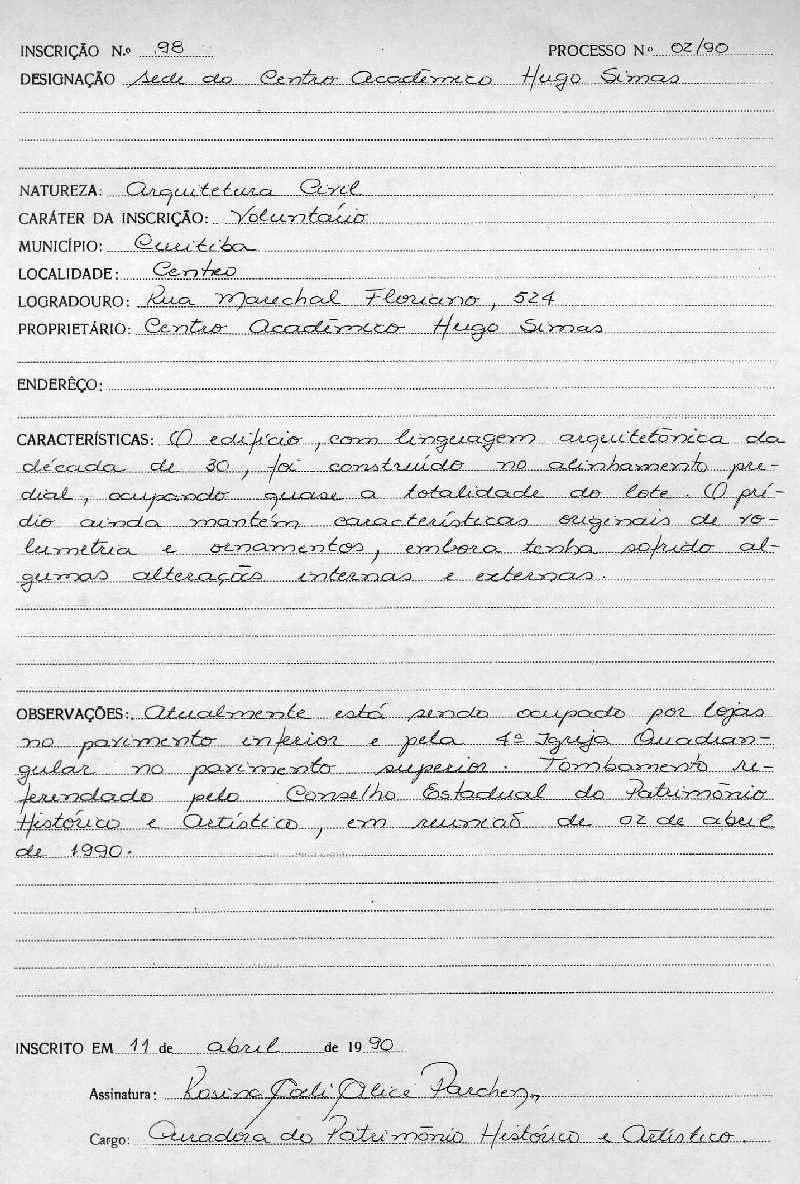 INSCRIÇÃO N.º 98 PROCESSO Nº 02/90
DESIGNAÇÃO Sede do Centro Acadêmico Hugo Simas
NATUREZA: Arquitetura Civil
CARÁTER DA INSCRIÇÃO: Voluntário
MUNICÍPIO: Curitiba
LOCALIDADE: Centro
LOGRADOURO: Rua Marechal Floriano, 524
PROPRIETÁRIO: Centro Acadêmico Hugo Simas
ENDERÊÇO:
CARACTERÍSTICAS: O edifício, com linguagem arquitetônica da
década de 30, foi construído no alinhamento pre-
dial, ocupando quase a totalidade do lote. O pré-
dio ainda mantém características originais de vo-
lumetria e ornamentos, embora tenha sofrido al-
gumas alterações internas e externas.
OBSERVAÇÕES: Atualmente está sendo ocupado por lojas
no pavimento inferior e pela 4ª Igreja Quadran-
gular no pavimento superior. Tombamento re-
ferendado pelo Conselho Estadual do Patrimônio
Histórico e Artístico, em reunião de 02 de abril
de 1990.
INSCRITO EM 11 de abril de 1990
Assinatura: Rosina Alice Parchen
Cargo: Curadora do Patrimônio Histórico e Artístico.